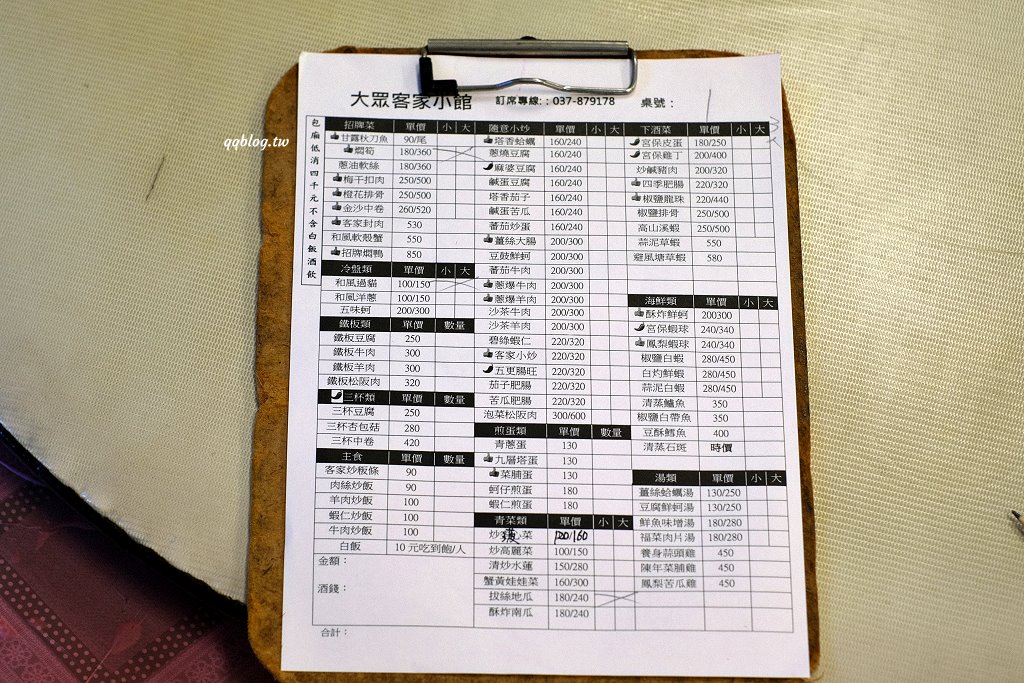 大眾客家小館 訂席專線:：037-879178 桌號：
包廂低消四千元不含白飯酒飲
qqblog.tw
招牌菜 單價 小 大
甘露秋刀魚 90/尾
燜筍 180/360
蔥油軟絲 180/360
梅干扣肉 250/500
橙花排骨 250/500
金沙中卷 260/520
客家封肉 530
和風軟殼蟹 550
招牌燜鴨 850
冷盤類 單價 小 大
和風過貓 100/150
和風洋蔥 100/150
五味蚵 200/300
鐵板類 單價 數量
鐵板豆腐 250
鐵板牛肉 300
鐵板羊肉 300
鐵板松阪肉 320
三杯類 單價 數量
三杯豆腐 250
三杯杏包菇 280
三杯中卷 420
主食 單價 數量
客家炒粄條 90
肉絲炒飯 90
羊肉炒飯 100
蝦仁炒飯 100
牛肉炒飯 100
白飯 10 元吃到飽/人
金額：
酒錢：
合計：
隨意小炒 單價 小 大
塔香蛤蠣 160/240
蔥燒豆腐 160/240
麻婆豆腐 160/240
鹹蛋豆腐 160/240
塔香茄子 160/240
鹹蛋苦瓜 160/240
蕃茄炒蛋 160/240
薑絲大腸 200/300
豆鼓鮮蚵 200/300
蕃茄牛肉 200/300
蔥爆牛肉 200/300
蔥爆羊肉 200/300
沙茶牛肉 200/300
沙茶羊肉 200/300
碧綠蝦仁 220/320
客家小炒 220/320
五更腸旺 220/320
茄子肥腸 220/320
苦瓜肥腸 220/320
泡菜松阪肉 300/600
煎蛋類 單價 數量
青蔥蛋 130
九層塔蛋 130
菜脯蛋 130
蚵仔煎蛋 180
蝦仁煎蛋 180
青菜類 單價 小 大
炒 菜 120/160
炒高麗菜 100/150
清炒水蓮 150/280
蟹黃娃娃菜 160/300
拔絲地瓜 180/240
酥炸南瓜 180/240
下酒菜 單價 小 大
宮保皮蛋 180/250
宮保雞丁 200/400
炒鹹豬肉 200/320
四季肥腸 220/320
椒鹽龍珠 220/440
椒鹽排骨 250/500
高山溪蝦 250/500
蒜泥草蝦 550
避風塘草蝦 580
海鮮類 單價 小 大
酥炸鮮蚵 200300
宮保蝦球 240/340
鳳梨蝦球 240/340
椒鹽白蝦 280/450
白灼鮮蝦 280/450
蒜泥白蝦 280/450
清蒸鱸魚 350
椒鹽白帶魚 350
豆酥鱈魚 400
清蒸石斑 時價
湯類 單價 小 大
薑絲蛤蠣湯 130/250
豆腐鮮蚵湯 130/250
鮮魚味增湯 180/280
福菜肉片湯 180/280
養身蒜頭雞 450
陳年菜脯雞 450
鳳梨苦瓜雞 450